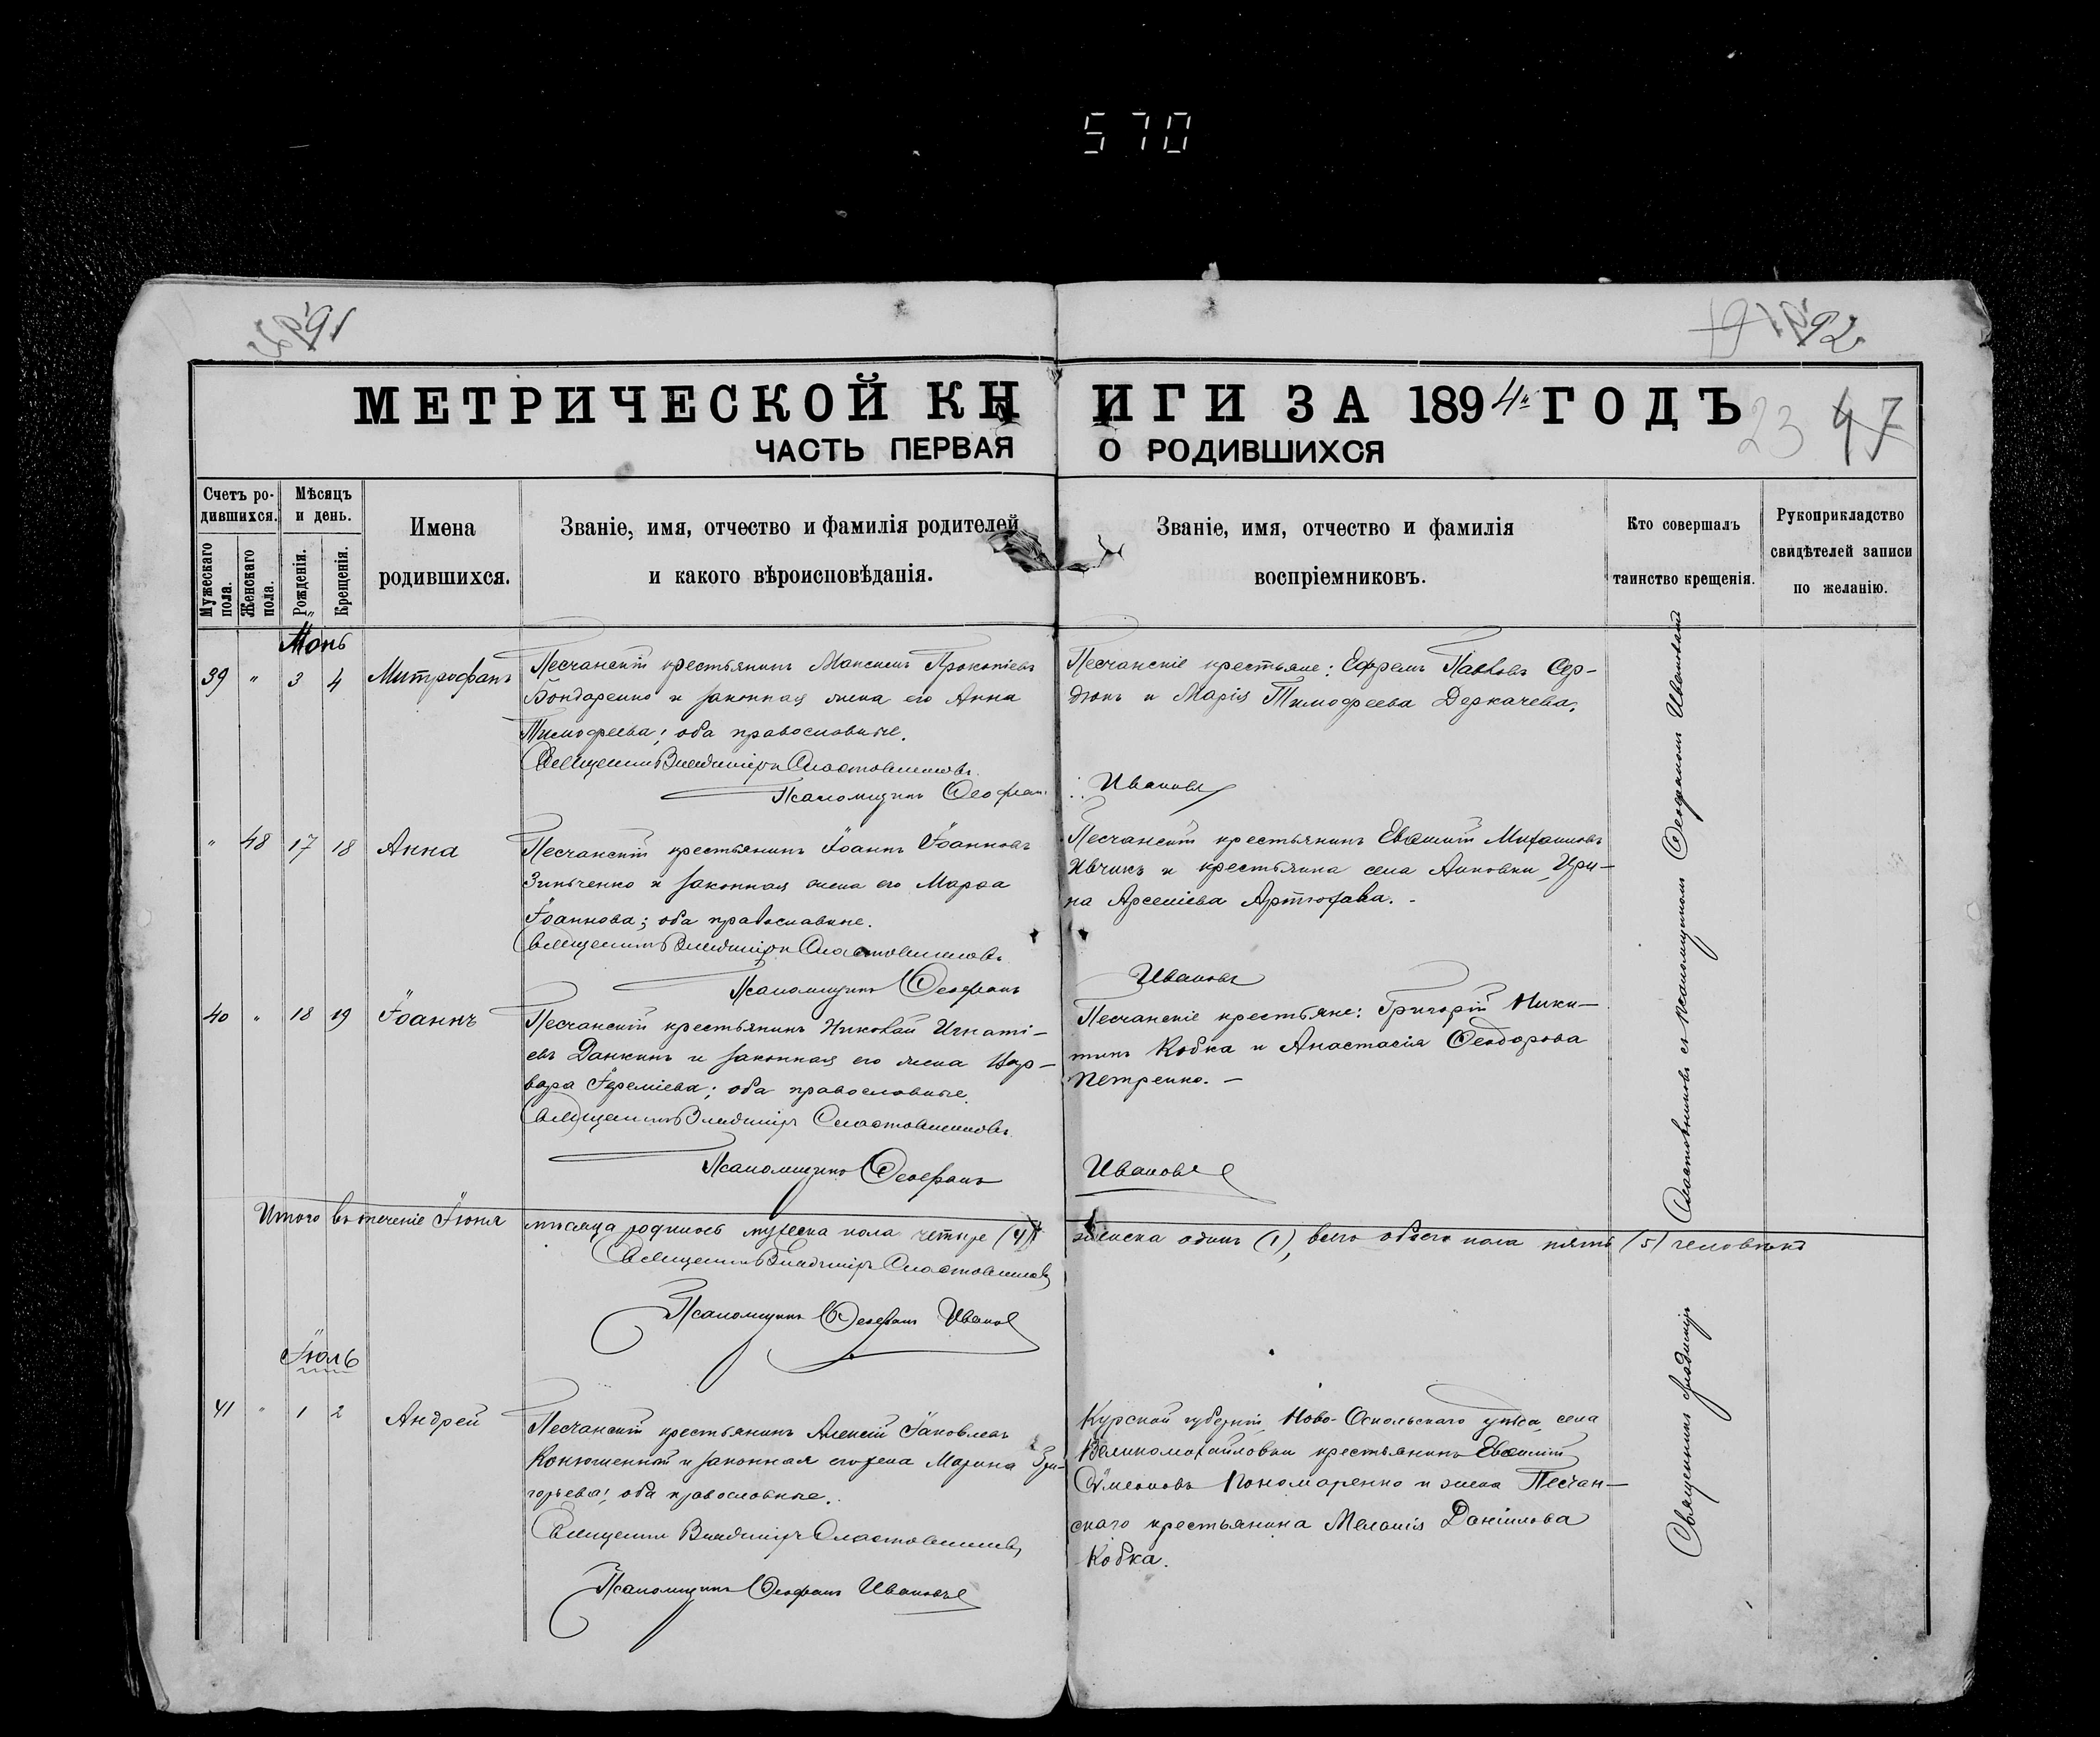 570
91
92
МЕТРИЧЕСКОЙ КНИГИ ЗА 1894й ГОДЪ
23 47
ЧАСТЬ ПЕРВАЯ О РОДИВШИХСЯ
Счетъ ро-
дившихся.
Мужескаго
пола.
Женскаго
пола.
Мѣсяцъ
и день.
Рожденія.
Крещенія.
Имена
родившихся.
Званіе, имя, отчество и фамилія родителей
и какого вѣроисповѣданія.
Званіе, имя, отчество и фамилія
воспріемниковъ.
Кто совершалъ
таинство крещенія.
Рукоприкладство
свидѣтелей записи
по желанію.
39 " 3 4 Митрофанъ
Песчанскій крестьянинъ Максимъ Прокопіевъ
Бондаренко и законная жена его Анна
Тимофеева; оба православные.
Священникъ Владиміръ Сластовниковъ.
Псаломщикъ Ѳеофан
Песчанскіе крестьяне: Ефремъ Павловъ Сер-
дюкъ и Марія Тимофеева Деркачева.
Ивановъ
" 48 17 18 Анна
Песчанскій крестьянинъ Іоаннъ Іоанновъ
Зинченко и законная жена его Марѳа
Іоаннова; оба православные.
Священникъ Владиміръ Сластовниковъ.
Псаломщикъ Ѳеофанъ
Песчанскій крестьянинъ Евѳимій Михаиловъ
Ивчикъ и крестьянка села Анновки, Ири-
на Арсеніева Артюхова. -
Ивановъ
40 " 18 19 Іоаннъ
Песчанскій крестьянинъ Николай Игнаті-
евъ Данкинъ и законная его жена Вар-
вара Іереміева; оба православные.
Священникъ Владиміръ Сластовниковъ.
Псаломщикъ Ѳеофанъ
Песчанскіе крестьяне: Григорій Ники-
тинъ Кобка и Анастасія Ѳеодорова
Петренко. -
Ивановъ
Итого въ теченіе Іюня мѣсяца родилось мужеска пола четыре (4), женска одинъ (1), всего обоего пола пять (5) человѣкъ
Священникъ Владиміръ Сластовниковъ
Псаломщикъ Ѳеофанъ Ивановъ
Іюль
41 " 1 2 Андрей
Песчанскій крестьянинъ Алексій Іаковлевъ
Конюшенный и законная его жена Марина Гри-
горьева; оба православные.
Священникъ Владиміръ Сластовниковъ
Псаломщикъ Ѳеофанъ Ивановъ
Курской губерніи, Ново-Оскольскаго уѣзда, села
Великомихайловки крестьянинъ Евѳимій
Сѵмеоновъ Пономаренко и жена Песчан-
скаго крестьянина Меланія Даніилова
Кобка.
Священникъ Владиміръ Сластовниковъ съ псаломщикомъ Ѳеофаномъ Ивановымъ